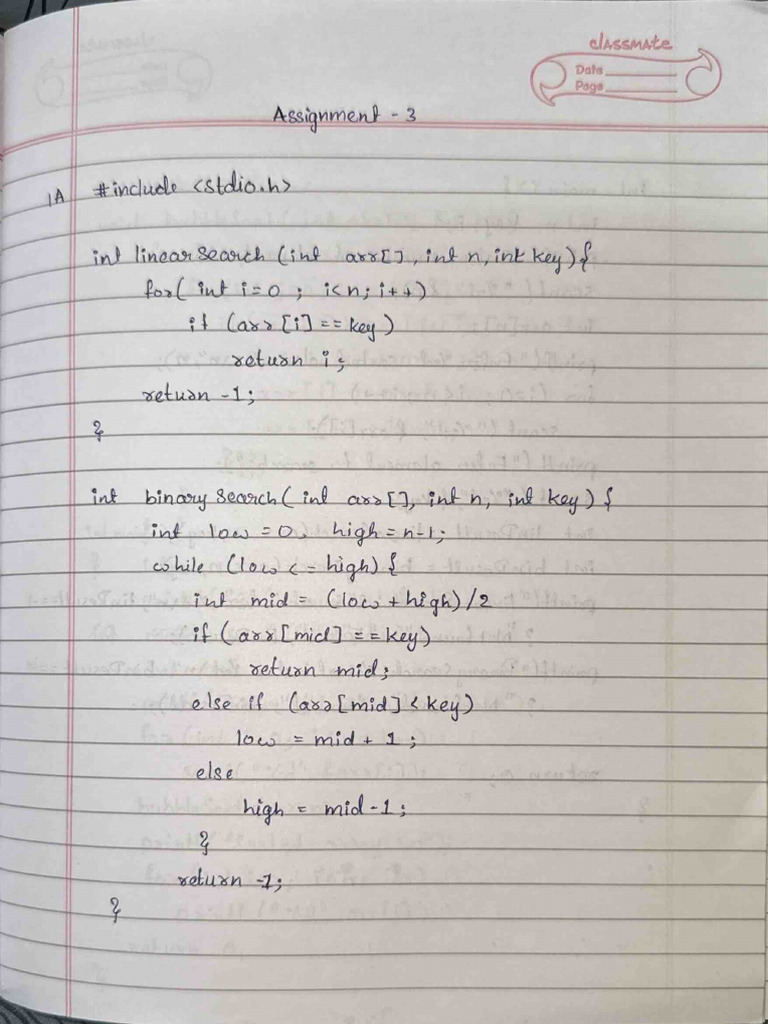 classmate
Date
Page
Assignment - 3
1A #include <stdio.h>
int linearSearch (int arr[], int n, int key) {
for( int i=0 ; i<n; i++)
if (arr[i]==key)
return i;
return -1;
}
int binarySearch( int arr[], int n, int key) {
int low = 0, high = n-1;
while (low <= high) {
int mid = (low + high)/2
if (arr[mid] == key)
return mid;
else if (arr[mid] < key)
low = mid + 1;
else
high = mid-1;
}
return -1;
}